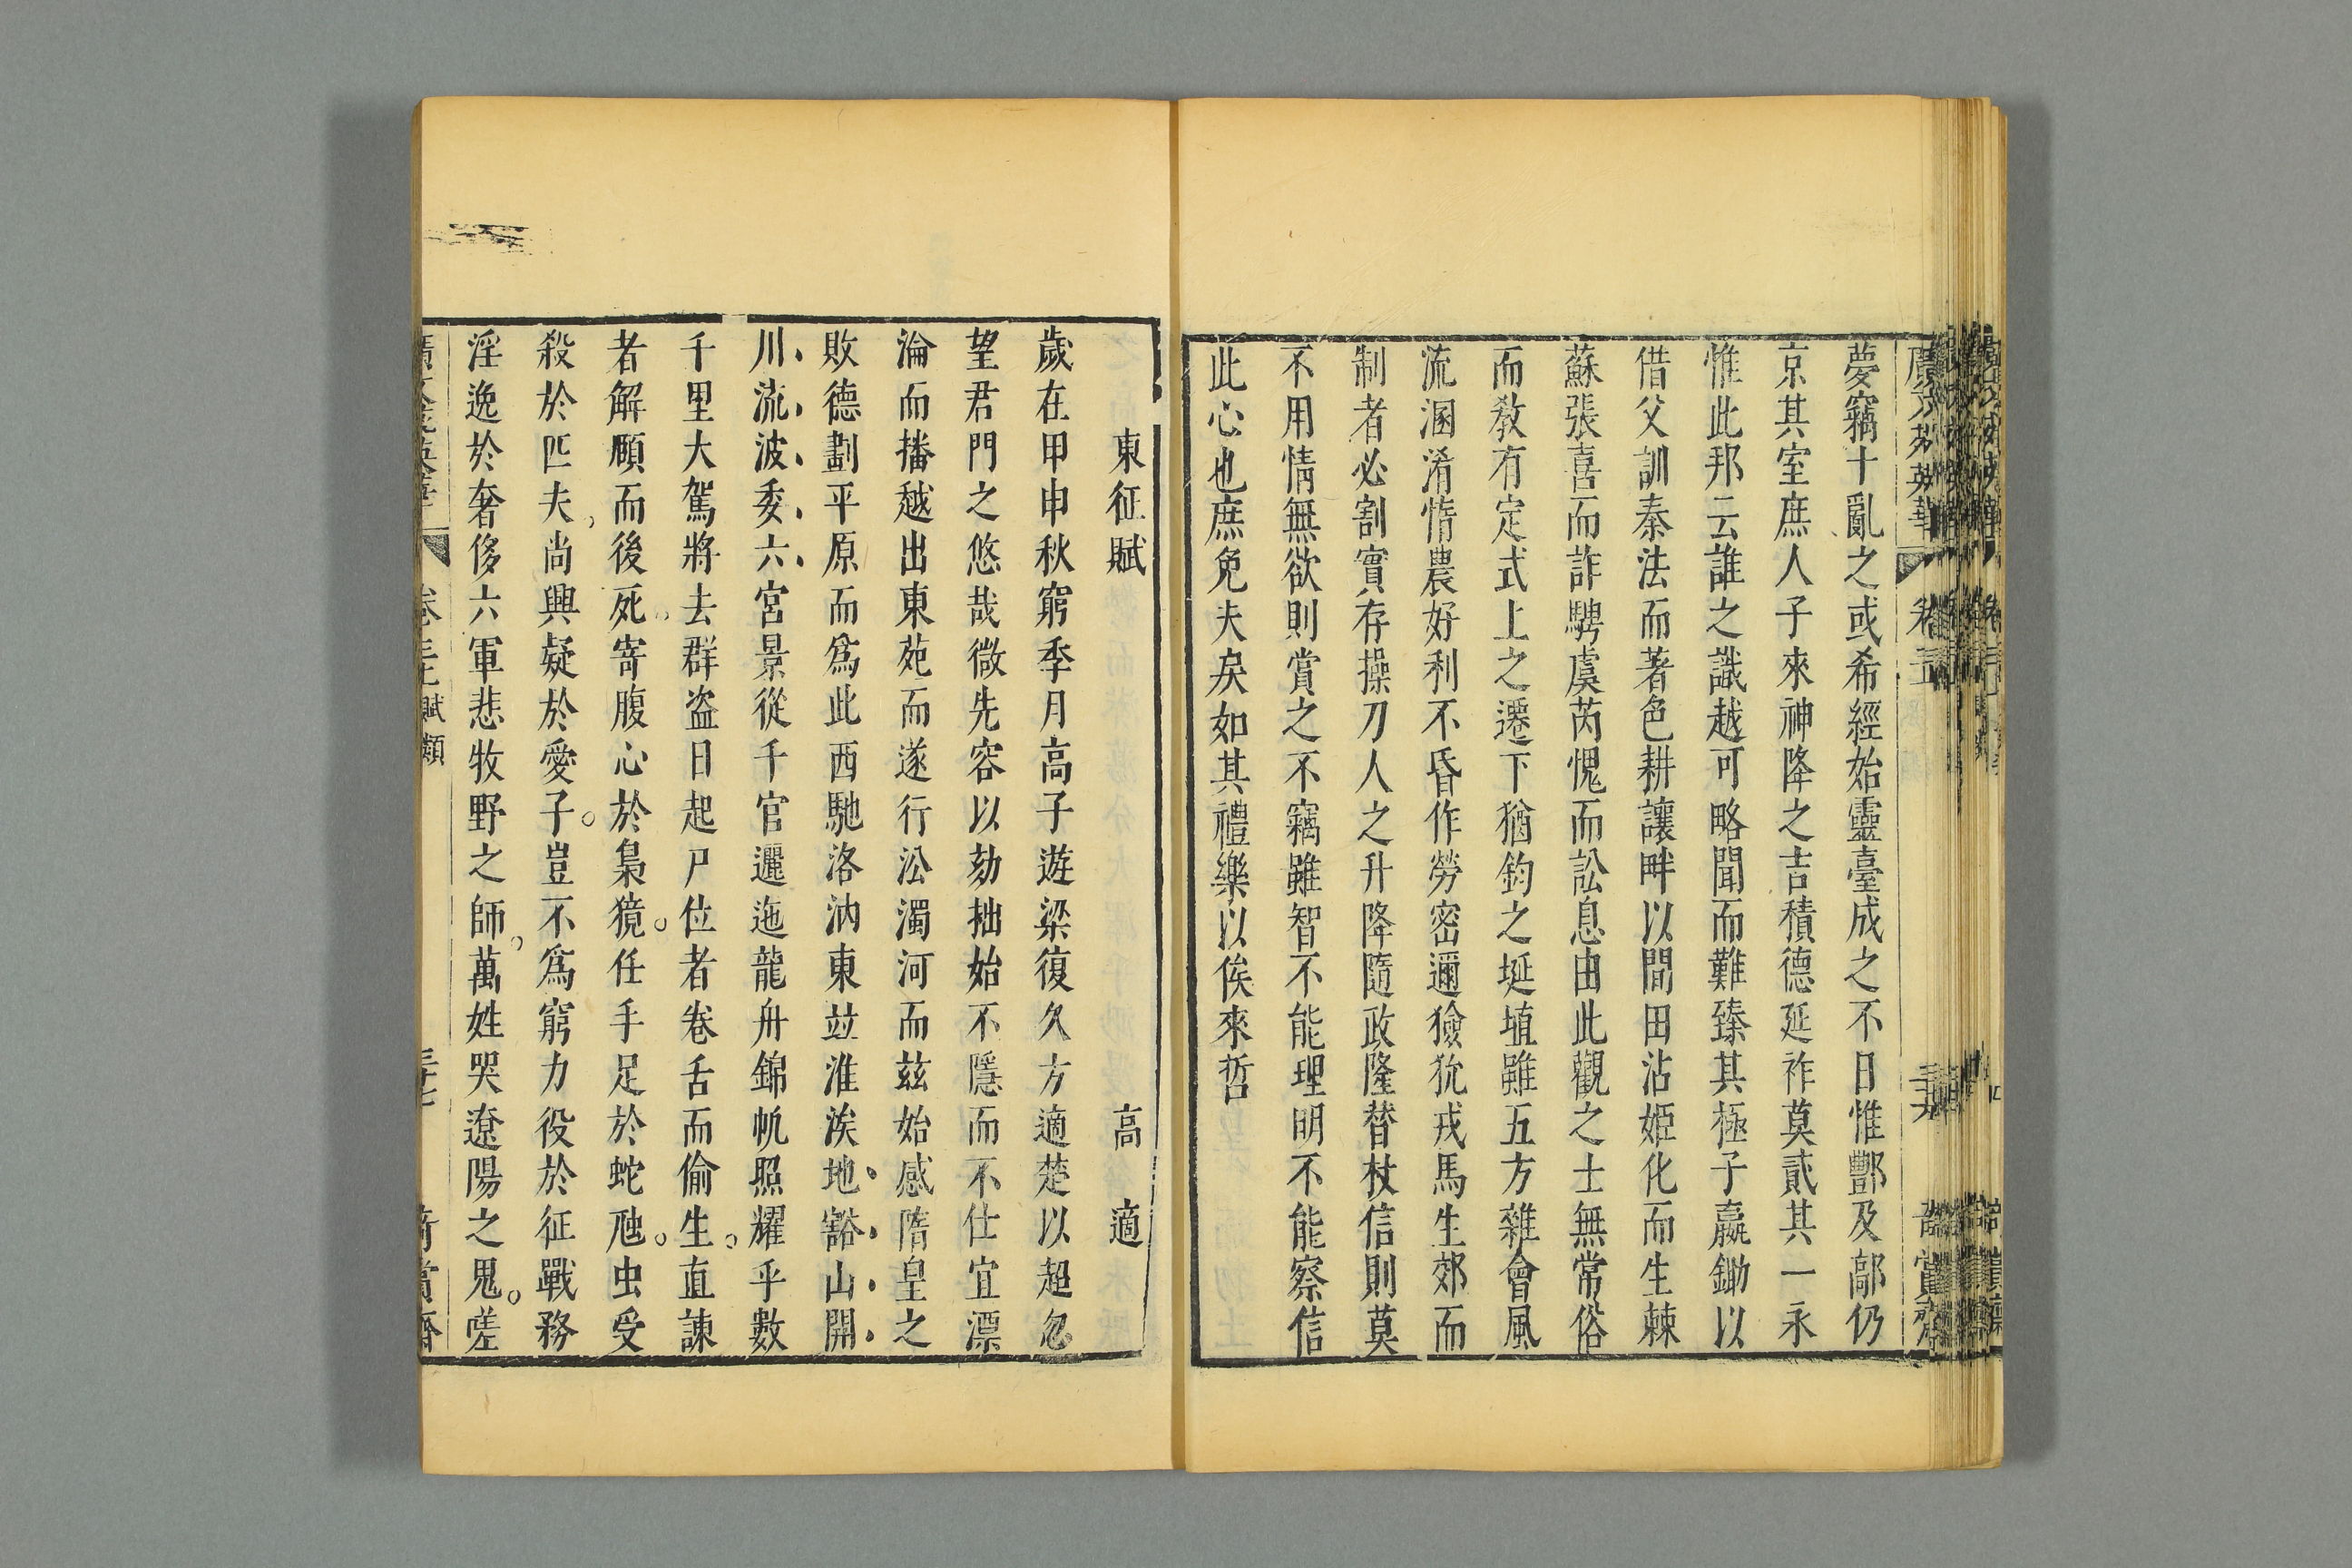 夢竊十亂之或希經始靈臺成之不日惟酆及鄗仍
京其室庶人子來神降之吉積德延祚莫貳其一永
惟此邦云誰之識越可略聞而難臻其極子嬴鋤以
借父訓秦法而著色耕讓畔以間田沾姬化而生棘
蘇張喜而詐騁虞芮愧而訟息由此觀之士無常俗
而教有定式上之遷下猶鈞之埏埴雖五方雜會風
流溷淆惰農好利不昏作勞密邇獫狁戎馬生郊而
制者必割實存操刀人之升降隨政隆替杖信則莫
不用情無欲則賞之不竊雖智不能理明不能察信
此心也庶免夫戾如其禮樂以俟來哲
東征賦 高適
歲在甲申秋窮季月高子遊梁復久方適楚以超忽
望君門之悠哉微先容以効拙始不隱而不仕宜漂
淪而播越出東苑而遂行沿濁河而玆始感隋皇之
敗德劃平原而爲此西馳洛汭東竝淮涘地豁山開
川流波委六宮景從千官邐迤龍舟錦帆照耀乎數
千里大駕將去群盗日起尸位者卷舌而偷生直諫
者解頤而後死寄腹心於梟獍任手足於蛇虺虫受
殺於匹夫尚興疑於愛子豈不爲窮力役於征戰務
淫逸於奢侈六軍悲牧野之師萬姓哭遼陽之鬼嗟
賦類